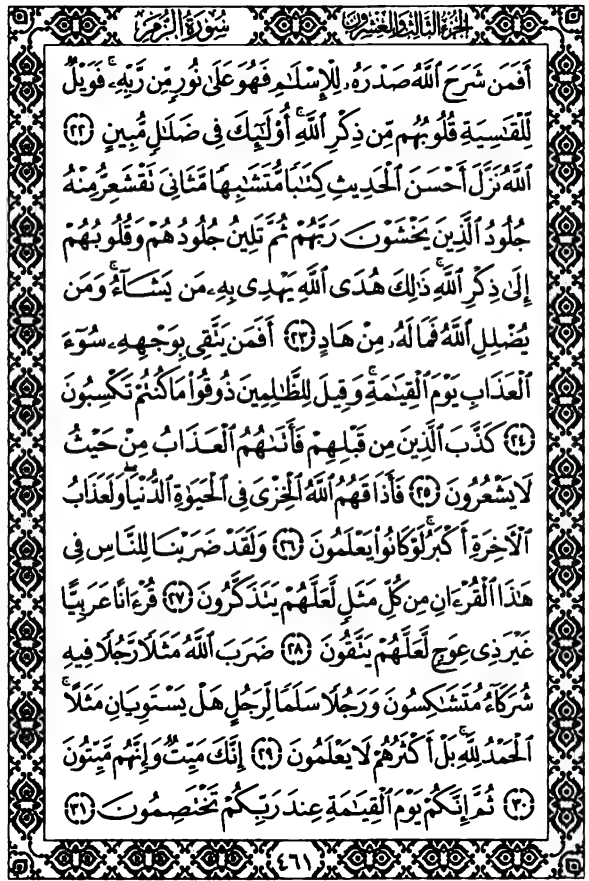 سُورَةُ الزُّمَرِ الجُزْءُ الثَّالِثُ وَالعِشْرُونَ
أَفَمَن شَرَحَ ٱللَّهُ صَدْرَهُۥ لِلْإِسْلَٰمِ فَهُوَ عَلَىٰ نُورٍ مِّن رَّبِّهِۦ ۚ فَوَيْلٌ
لِّلْقَٰسِيَةِ قُلُوبُهُم مِّن ذِكْرِ ٱللَّهِ ۚ أُو۟لَٰٓئِكَ فِى ضَلَٰلٍ مُّبِينٍ ٢٢
ٱللَّهُ نَزَّلَ أَحْسَنَ ٱلْحَدِيثِ كِتَٰبًا مُّتَشَٰبِهًا مَّثَانِىَ تَقْشَعِرُّ مِنْهُ
جُلُودُ ٱلَّذِينَ يَخْشَوْنَ رَبَّهُمْ ثُمَّ تَلِينُ جُلُودُهُمْ وَقُلُوبُهُمْ
إِلَىٰ ذِكْرِ ٱللَّهِ ۚ ذَٰلِكَ هُدَى ٱللَّهِ يَهْدِى بِهِۦ مَن يَشَآءُ ۚ وَمَن
يُضْلِلِ ٱللَّهُ فَمَا لَهُۥ مِنْ هَادٍ ٢٣ أَفَمَن يَتَّقِى بِوَجْهِهِۦ سُوٓءَ
ٱلْعَذَابِ يَوْمَ ٱلْقِيَٰمَةِ ۚ وَقِيلَ لِلظَّٰلِمِينَ ذُوقُوا۟ مَا كُنتُمْ تَكْسِبُونَ
٢٤ كَذَّبَ ٱلَّذِينَ مِن قَبْلِهِمْ فَأَتَىٰهُمُ ٱلْعَذَابُ مِنْ حَيْثُ
لَا يَشْعُرُونَ ٢٥ فَأَذَاقَهُمُ ٱللَّهُ ٱلْخِزْىَ فِى ٱلْحَيَوٰةِ ٱلدُّنْيَا ۖ وَلَعَذَابُ
ٱلْءَاخِرَةِ أَكْبَرُ ۚ لَوْ كَانُوا۟ يَعْلَمُونَ ٢٦ وَلَقَدْ ضَرَبْنَا لِلنَّاسِ فِى
هَٰذَا ٱلْقُرْءَانِ مِن كُلِّ مَثَلٍ لَّعَلَّهُمْ يَتَذَكَّرُونَ ٢٧ قُرْءَانًا عَرَبِيًّا
غَيْرَ ذِى عِوَجٍ لَّعَلَّهُمْ يَتَّقُونَ ٢٨ ضَرَبَ ٱللَّهُ مَثَلًا رَّجُلًا فِيهِ
شُرَكَآءُ مُتَشَٰكِسُونَ وَرَجُلًا سَلَمًا لِّرَجُلٍ هَلْ يَسْتَوِيَانِ مَثَلًا ۚ
ٱلْحَمْدُ لِلَّهِ ۚ بَلْ أَكْثَرُهُمْ لَا يَعْلَمُونَ ٢٩ إِنَّكَ مَيِّتٌ وَإِنَّهُم مَّيِّتُونَ
٣٠ ثُمَّ إِنَّكُمْ يَوْمَ ٱلْقِيَٰمَةِ عِندَ رَبِّكُمْ تَخْتَصِمُونَ ٣١
٤٦١